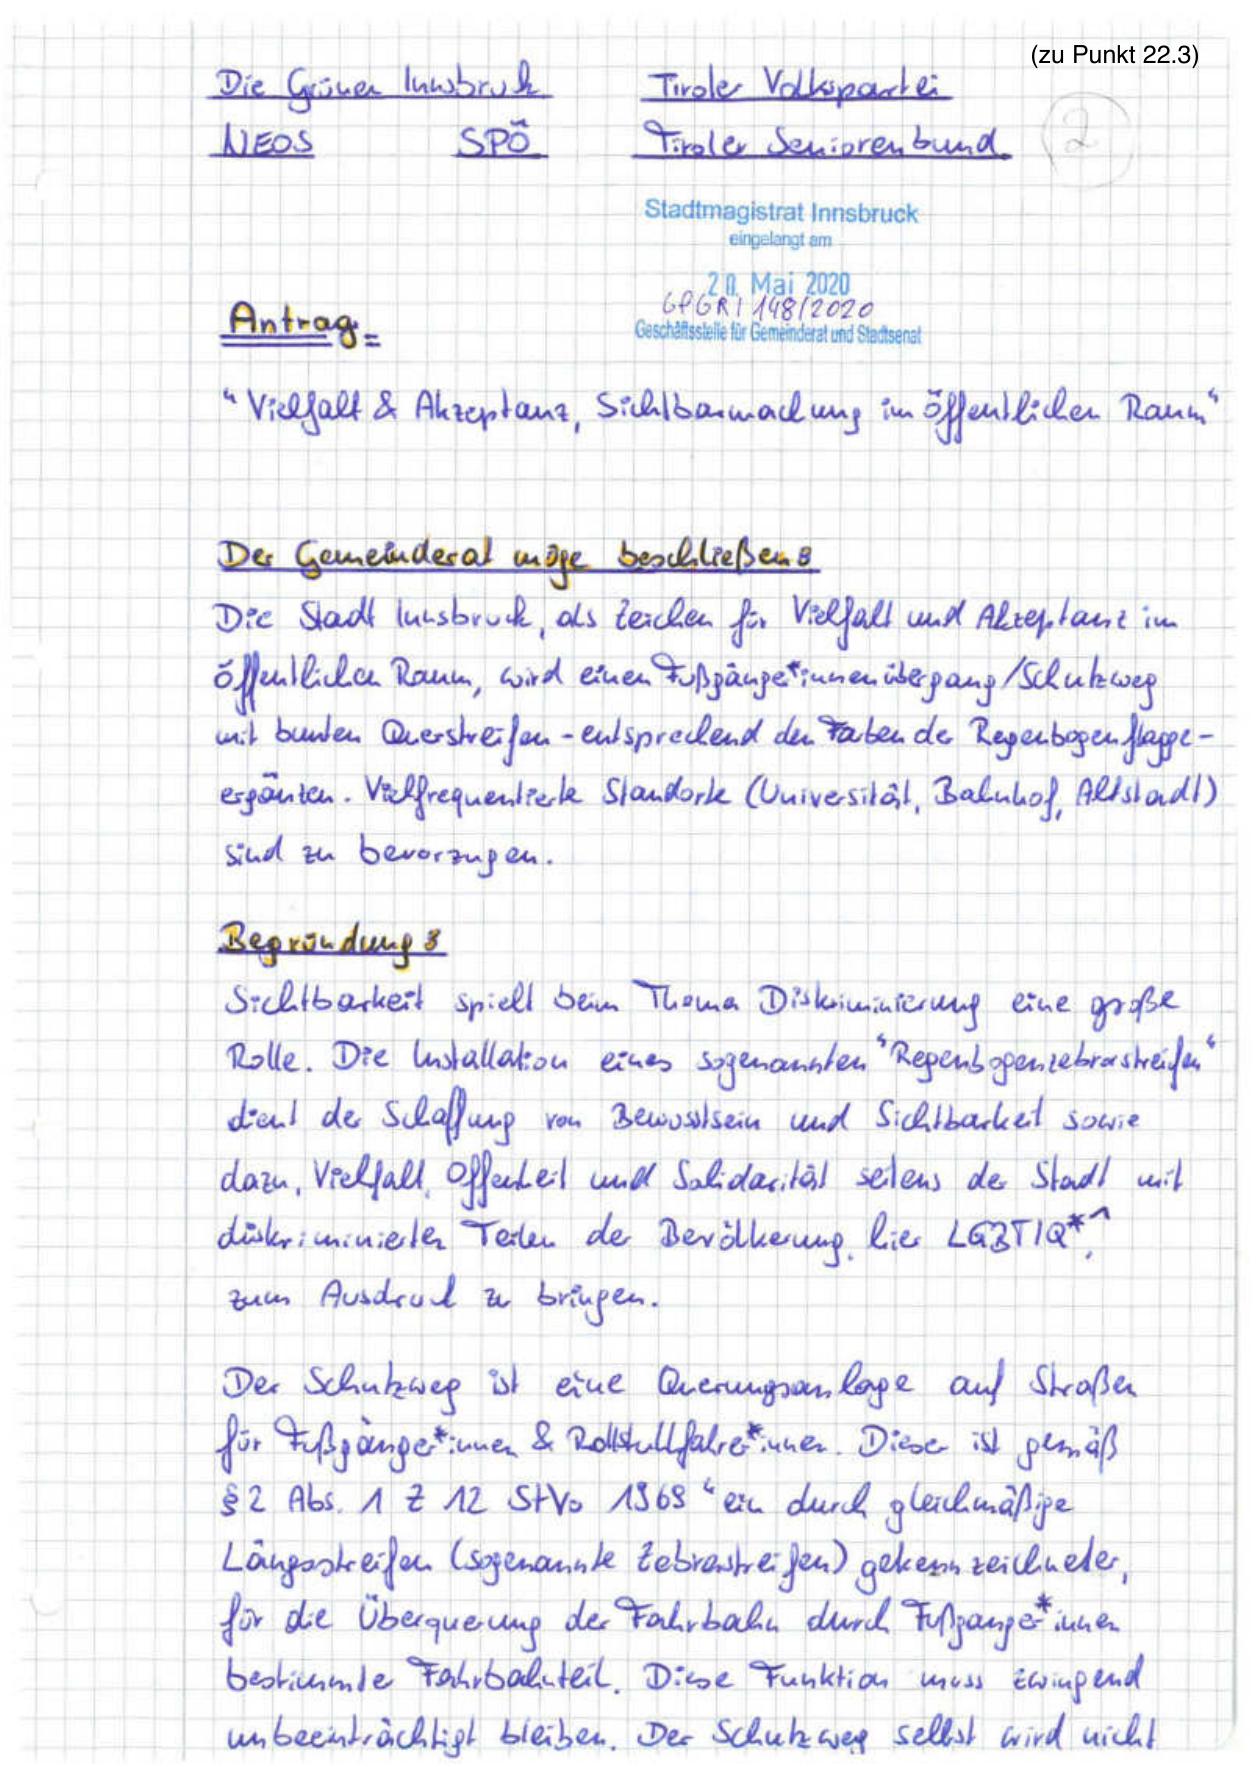 (zu Punkt 22.3)
Die Grünen Innsbruck Tiroler Volkspartei
NEOS SPÖ Tiroler Seniorenbund
2
Stadtmagistrat Innsbruck
eingelangt am
20. Mai 2020
GfGR/148/2020
Geschäftsstelle für Gemeinderat und Stadtsenat
Antrag:
"Vielfalt & Akzeptanz, Sichtbarmachung im öffentlichen Raum"
Der Gemeinderat möge beschließen:
Die Stadt Innsbruck, als Zeichen für Vielfalt und Akzeptanz im
öffentlichen Raum, wird einen Fußgänger*innenübergang/Schutzweg
mit bunten Querstreifen - entsprechend den Farben der Regenbogenflagge -
ergänzen. Vielfrequentierte Standorte (Universität, Bahnhof, Altstadt)
sind zu bevorzugen.
Begründung:
Sichtbarkeit spielt beim Thema Diskriminierung eine große
Rolle. Die Installation eines sogenannten "Regenbogenzebrastreifen"
dient der Schaffung von Bewusstsein und Sichtbarkeit sowie
dazu, Vielfalt, Offenheit und Solidarität seitens der Stadt mit
diskriminierten Teilen der Bevölkerung, hier LGBTIQ*¹,
zum Ausdruck zu bringen.
Der Schutzweg ist eine Querungsanlage auf Straßen
für Fußgänger*innen & Rollstuhlfahrer*innen. Dieser ist gemäß
§2 Abs. 1 Z 12 StVo 1969 "ein durch gleichmäßige
Längsstreifen (sogenannte Zebrastreifen) gekennzeichneter,
für die Überquerung der Fahrbahn durch Fußgänger*innen
bestimmte Fahrbahnteil. Diese Funktion muss zwingend
unbeeinträchtigt bleiben. Der Schutzweg selbst wird nicht